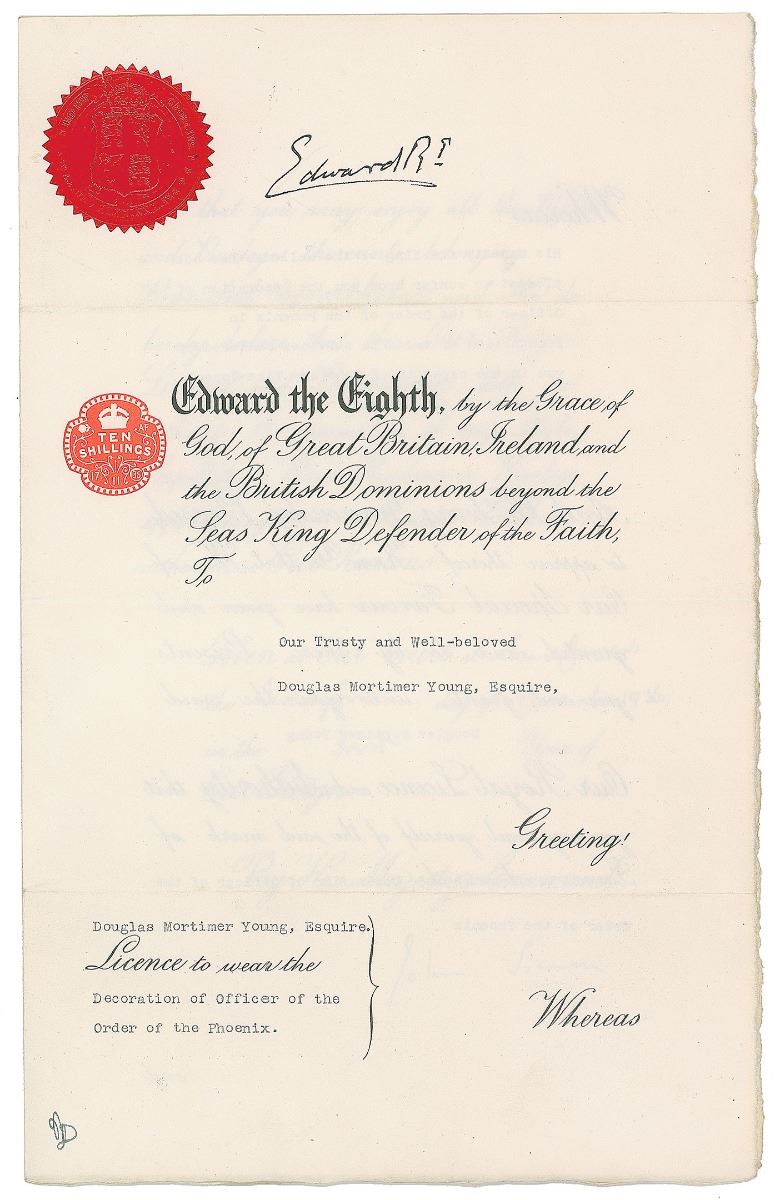 Edward R I
Edward the Eighth, by the Grace of
God, of Great Britain, Ireland and
the British Dominions beyond the
Seas King Defender of the Faith,
To
TEN
SHILLINGS
Our Trusty and Well-beloved
Douglas Mortimer Young, Esquire,
Greeting!
Douglas Mortimer Young, Esquire.
Licence to wear the
Decoration of Officer of the
Order of the Phoenix.
Whereas